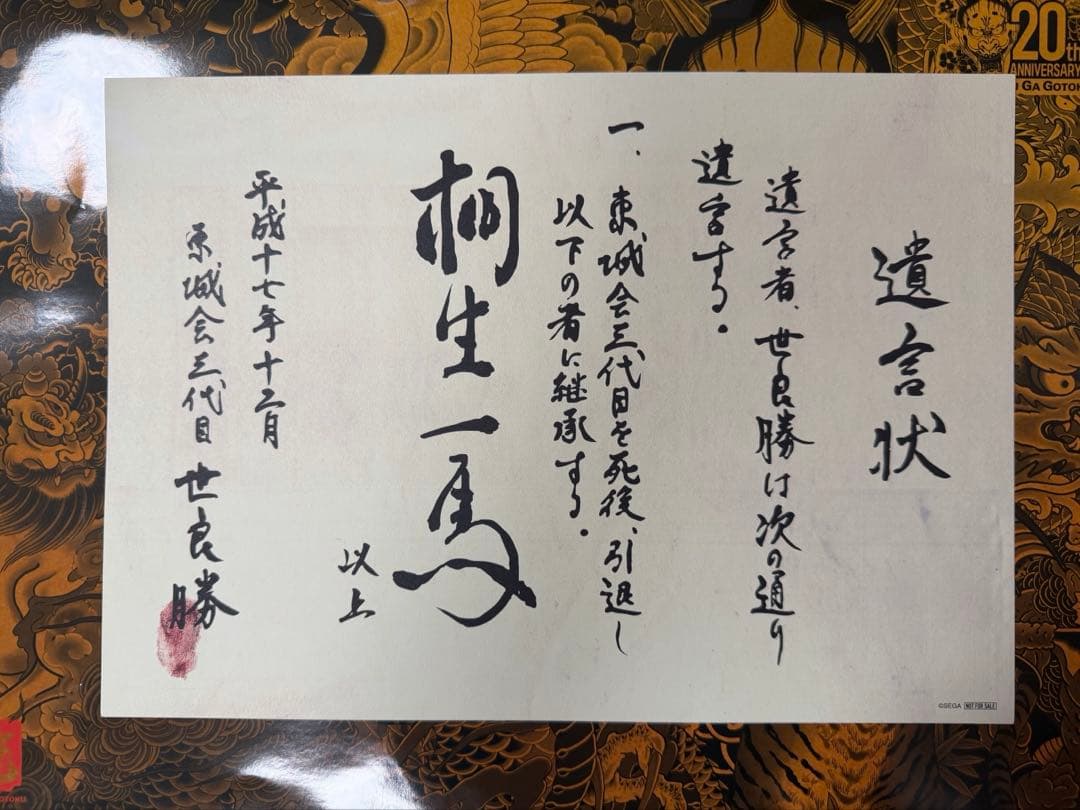 遺言状
遺言者、世良勝は次の通り
遺言する。
一、東城会三代目を死後、引退し
以下の者に継承する。
桐生一馬
以上
平成十七年十二月
東城会三代目 世良勝
©SEGA NOT FOR SALE
20th
ANNIVERSARY
U GA GOTOKU